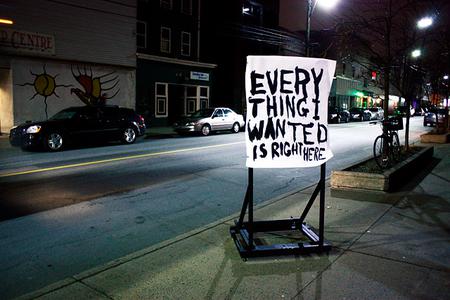 P CENTRE
EVERY
THING I
WANTED
IS RIGHT HERE